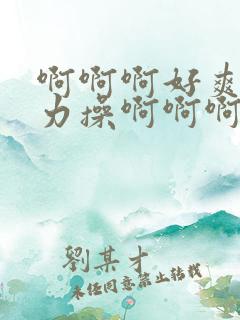 啊啊啊好爽
力操啊啊啊
劉某才
未经同意禁止转载